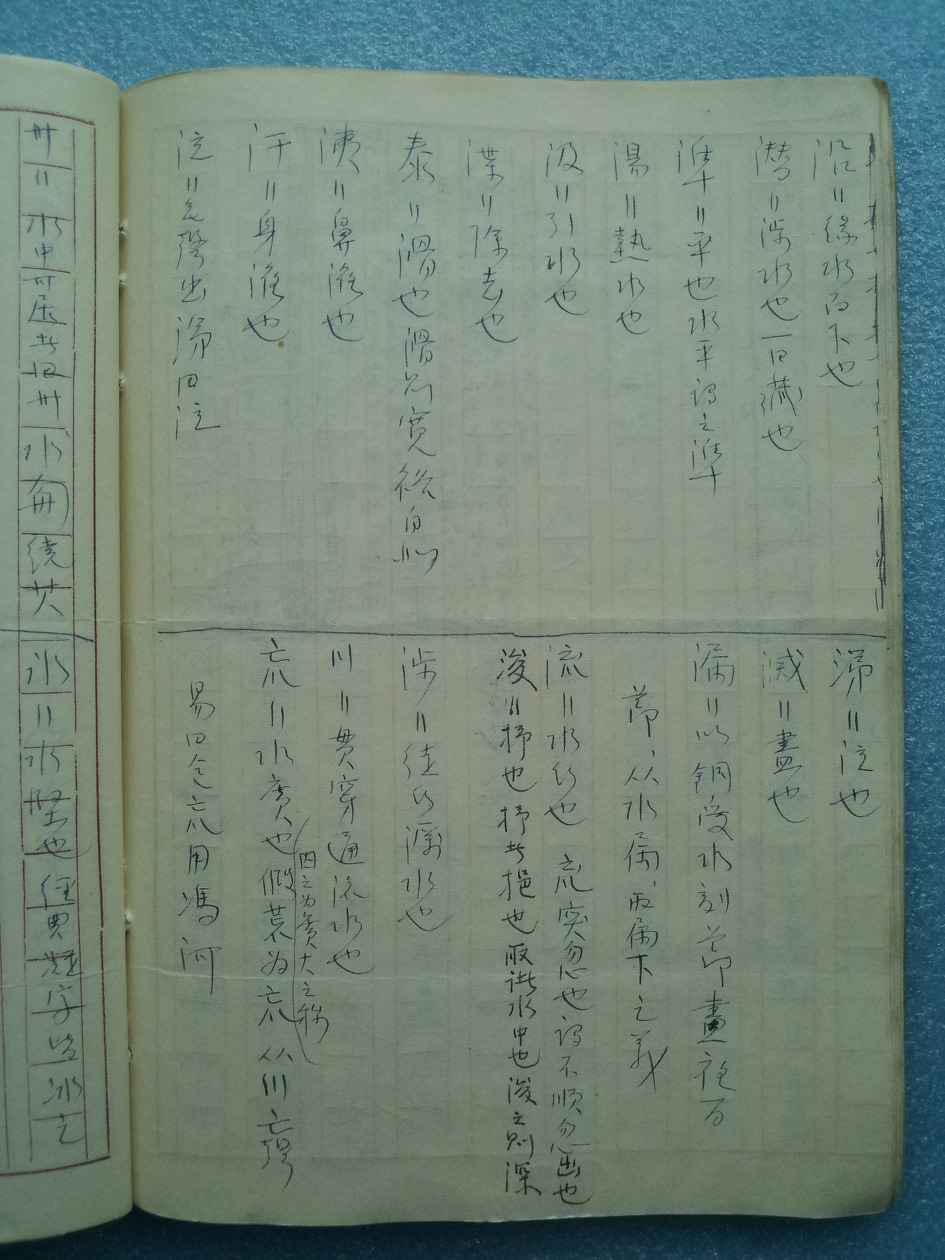 沿〃緣水而下也
潛〃涉水也一曰藏也
準〃平也水平謂之準
湯〃熱水也
汲〃引水也
渫〃除去也
泰〃滑也滑則寬裕自如
洟〃鼻液也
汗〃身液也
泣〃无聲出涕曰泣
涕〃泣也
滅〃盡也
漏〃以銅受水刻節晝夜百
節、从水屚、取屚下之義
流〃水行也 㐬突忽也謂不順忽出也
浚〃抒也抒者挹也取諸水中也浚之則深
涉〃徒行濿水也
川〃貫穿通流水也
巟〃水廣也假荒為巟从川亡聲
因之為廣大之稱
易曰包巟用馮河
州〃水中可居者曰州水匊繞其
冰〃水堅也經典凝字皆冰之